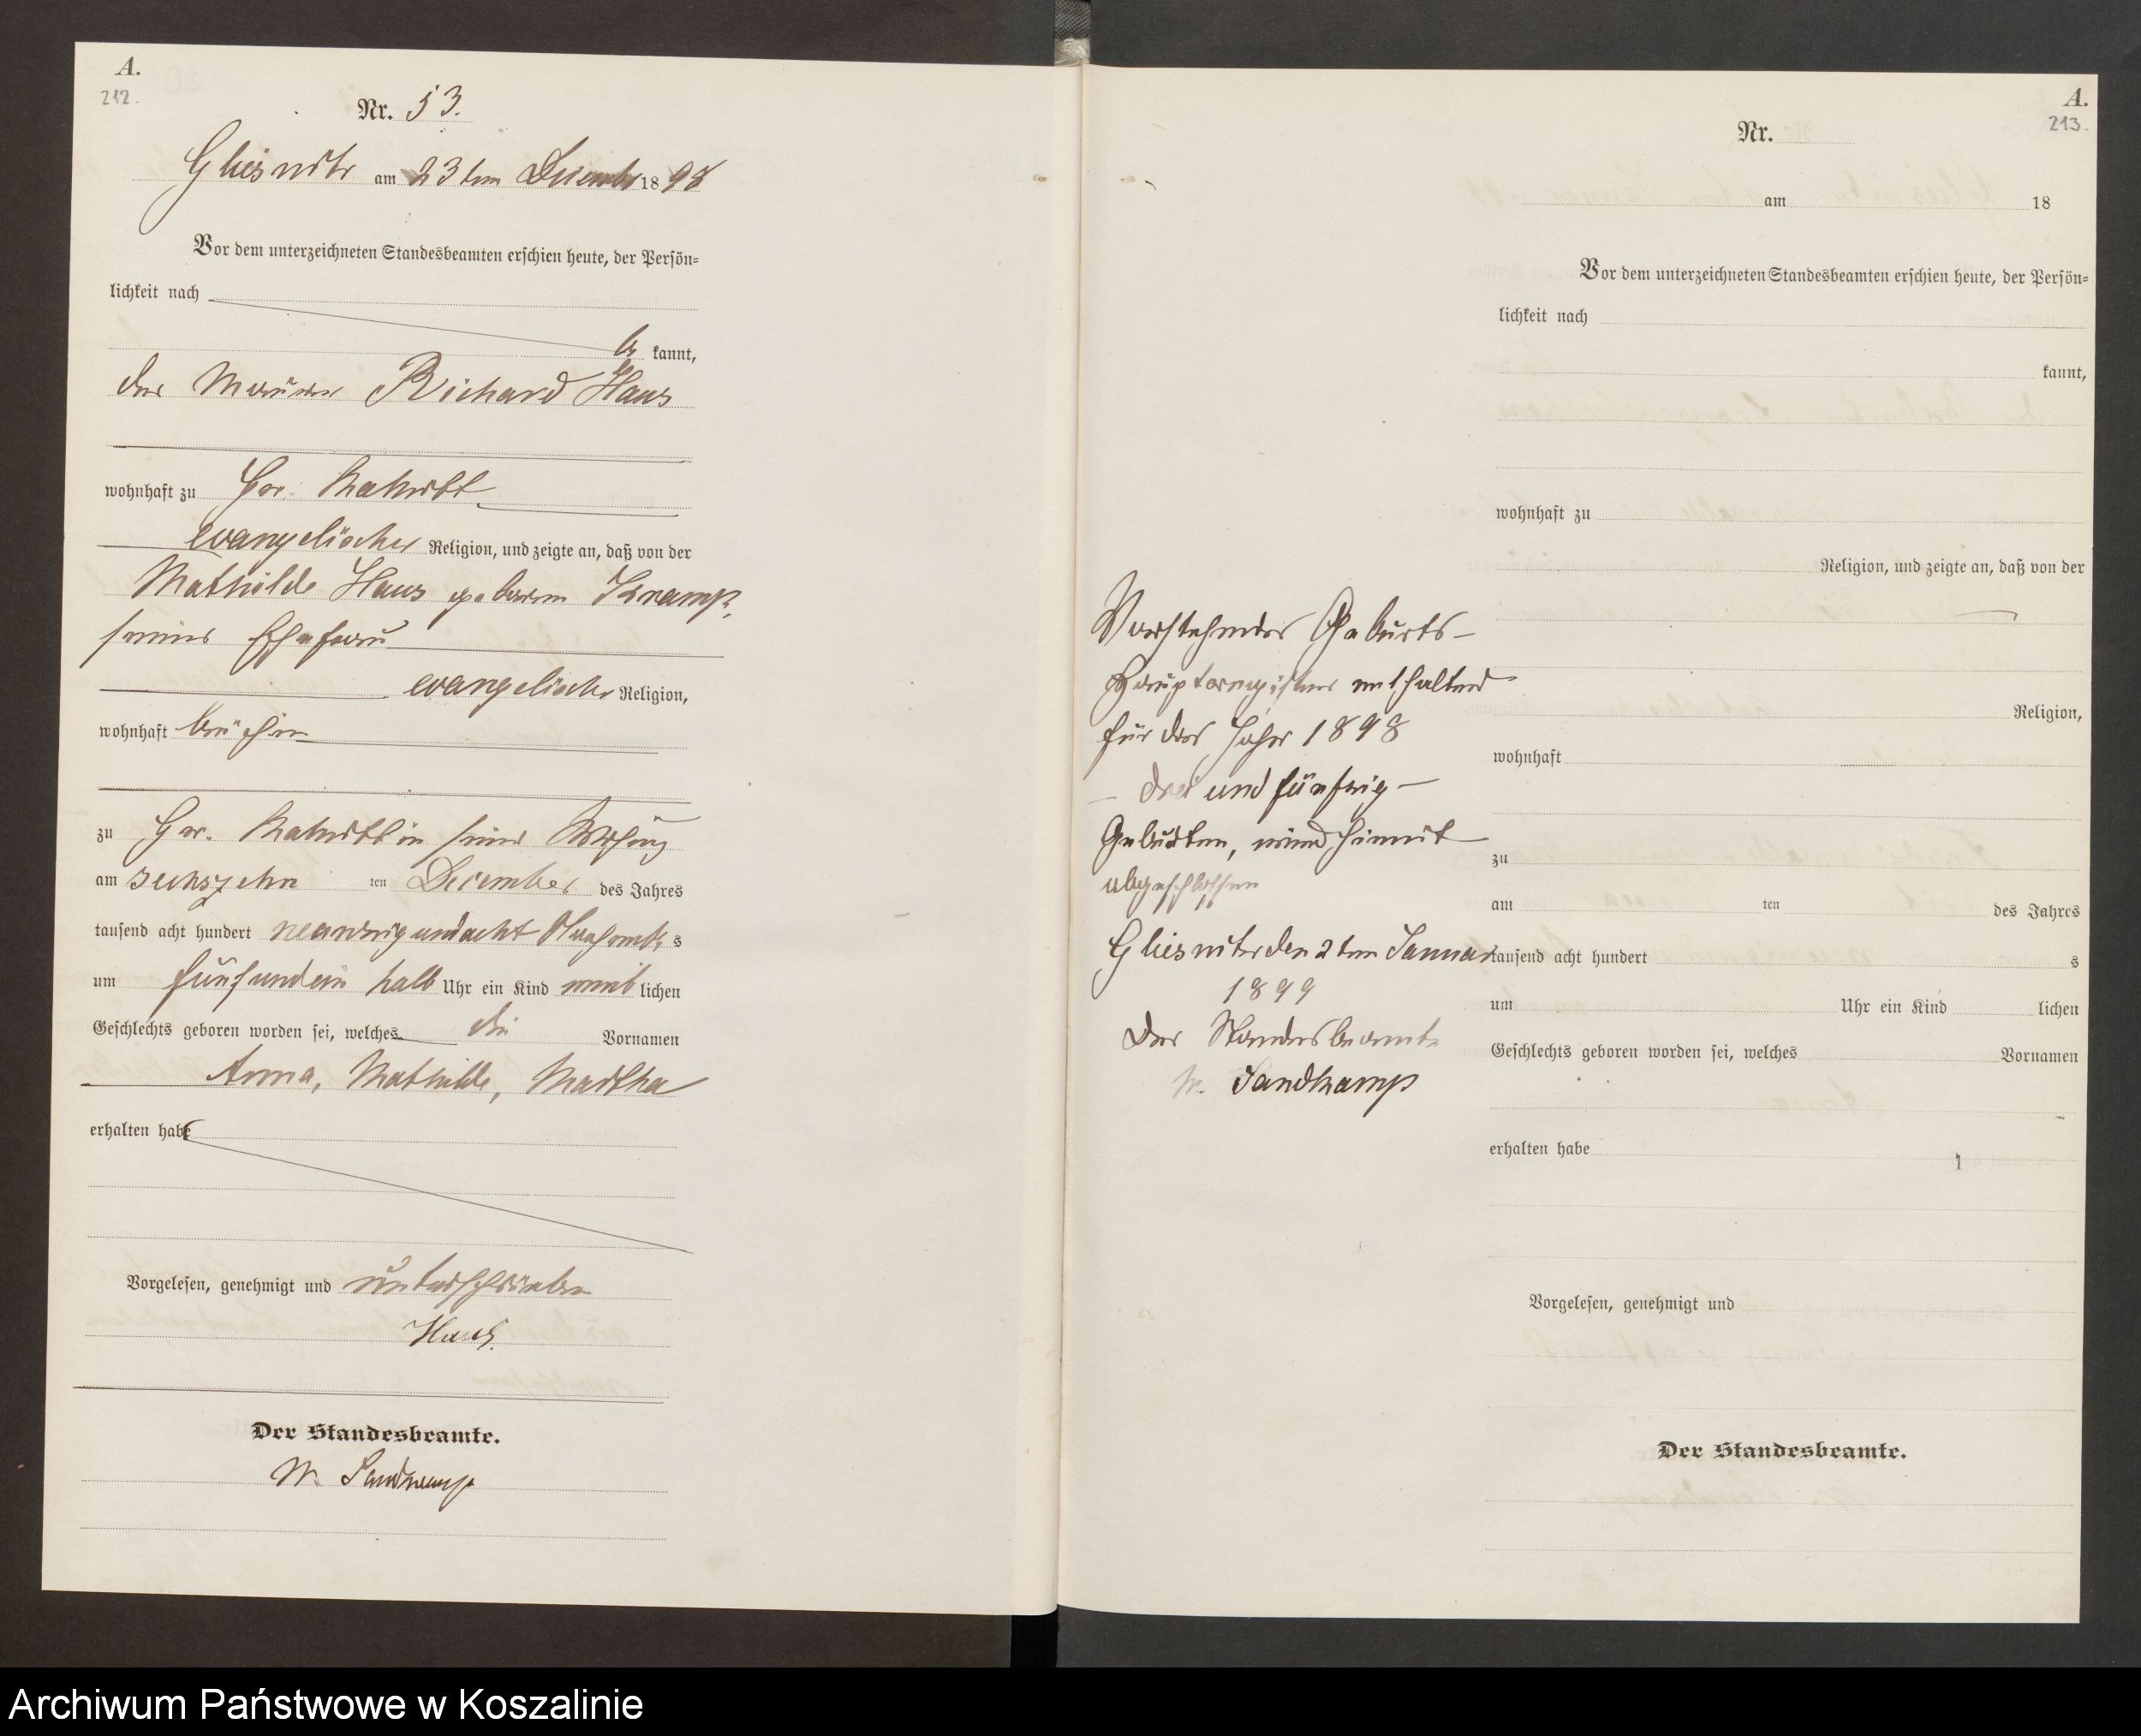 A.
212.
Nr. 53.
Gliesnitz am 23ten December 1898
Vor dem unterzeichneten Standesbeamten erschien heute, der Persön-
lichkeit nach
be kannt,
der Maurer Richard Haus
wohnhaft zu Gr.
evangelischer Religion, und zeigte an, daß von der
Mathilde Haus geborene Knamp,
seiner Ehefrau
evangelischer Religion,
wohnhaft bei ihm
zu Gr. in seiner Wohnung
am sechszehn ten December des Jahres
tausend acht hundert neunzig und acht Nachmittags
um fünf und ein halb Uhr ein Kind weiblichen
Geschlechts geboren worden sei, welches die Vornamen
Anna, Mathilde, Martha
erhalten habe
Vorgelesen, genehmigt und unterschrieben
Haus.
Der Standesbeamte.
W. Sandkamp
A.
213.
Nr.
am 18
Vor dem unterzeichneten Standesbeamten erschien heute, der Persön-
lichkeit nach
kannt,
wohnhaft zu
Religion, und zeigte an, daß von der
Religion,
wohnhaft
zu
am ten des Jahres
tausend acht hundert s
um Uhr ein Kind lichen
Geschlechts geboren worden sei, welches Vornamen
erhalten habe
Vorgelesen, genehmigt und
Der Standesbeamte.
Vorstehendes Geburts-
Hauptregister enthaltend
für das Jahr 1898
- drei und fünfzig -
Geburten, wird hiermit
abgeschlossen
Gliesnitz den 2ten Januar
1899
Der Standesbeamte
W. Sandkamp
Archiwum Państwowe w Koszalinie